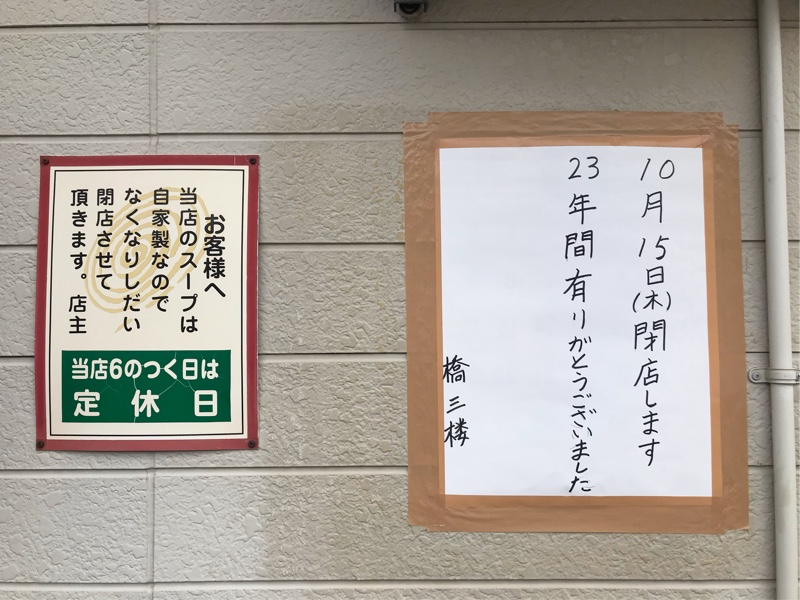 お客様へ
当店のスープは
自家製なので
なくなりしだい
閉店させて
頂きます。店主
当店6のつく日は
定休日
10月15日(木)閉店します
23年間有りがとうございました
橋三楼